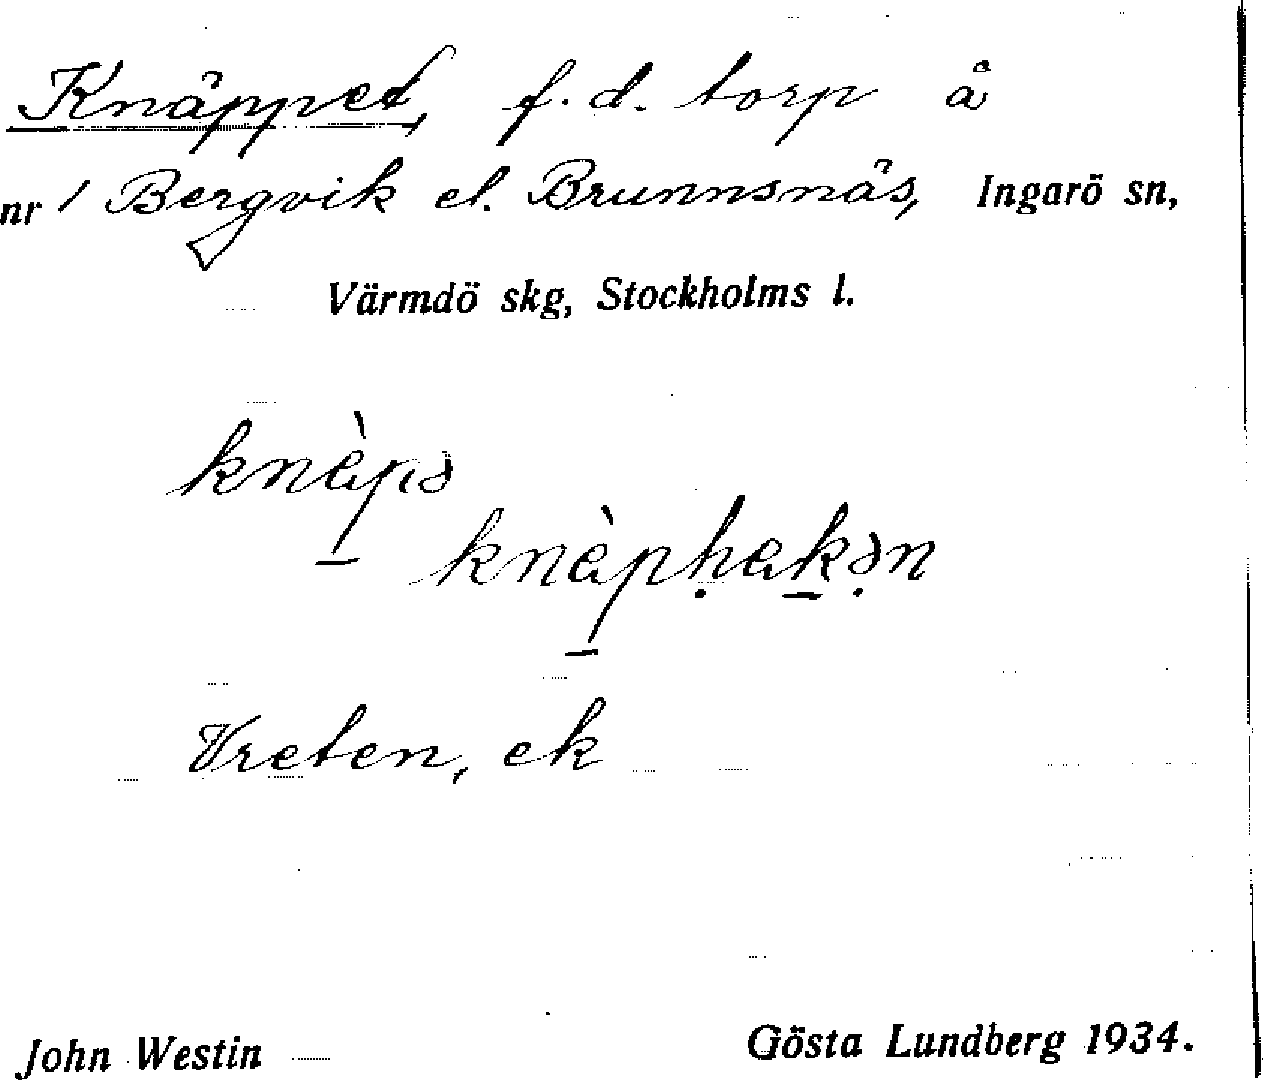 Knäppet, f. d. torp å
nr 1 Bergvik el. Brunnsnäs, Ingarö sn,
Värmdö skg, Stockholms l.
knὲpə
knὲpḥak̠ə̣n
Vreten, ek
John Westin Gösta Lundberg 1934.